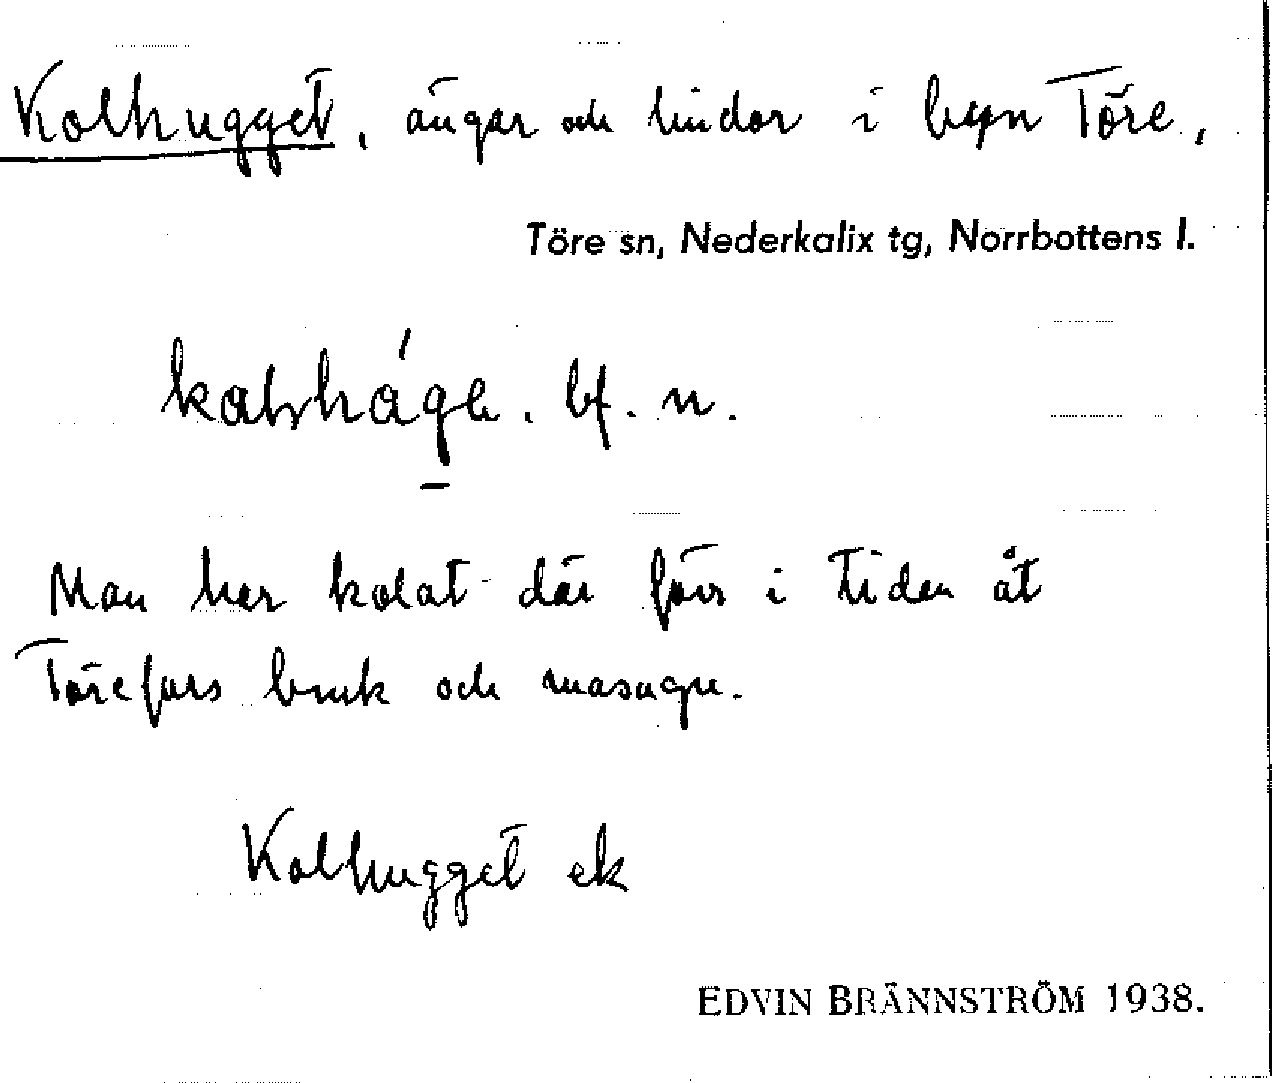 Kolhugget, ängar och lindor i byn Töre,
Töre sn, Nederkalix tg, Norrbottens l.
bf. n.
Man har kolat där förr i tiden åt
Törefors bruk och masugn.
Kolhugget ek
EDVIN BRÄNNSTRÖM 1938.